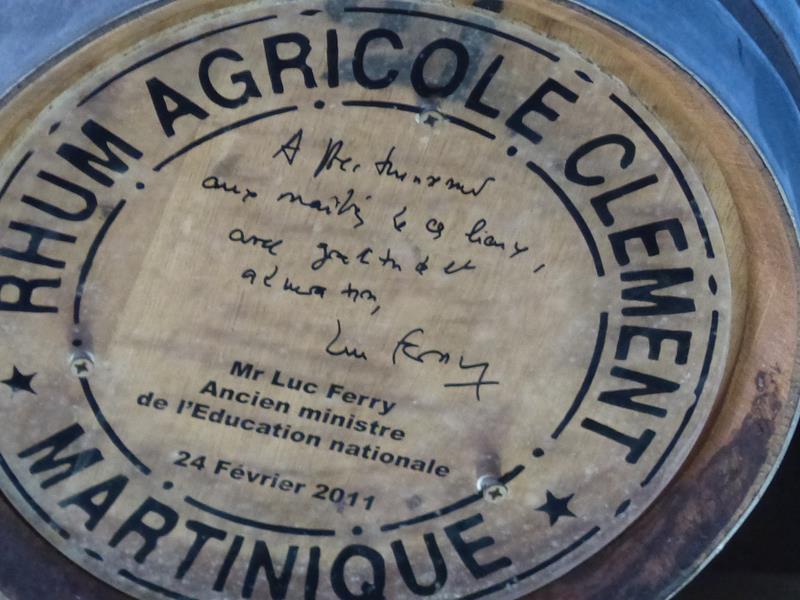 RHUM AGRICOLE CLEMENT
A
aux maîtres de ces lieux,
avec gratitude et
admiration,
Luc Ferry
Mr Luc Ferry
Ancien ministre
de l'Education nationale
24 Février 2011
MARTINIQUE